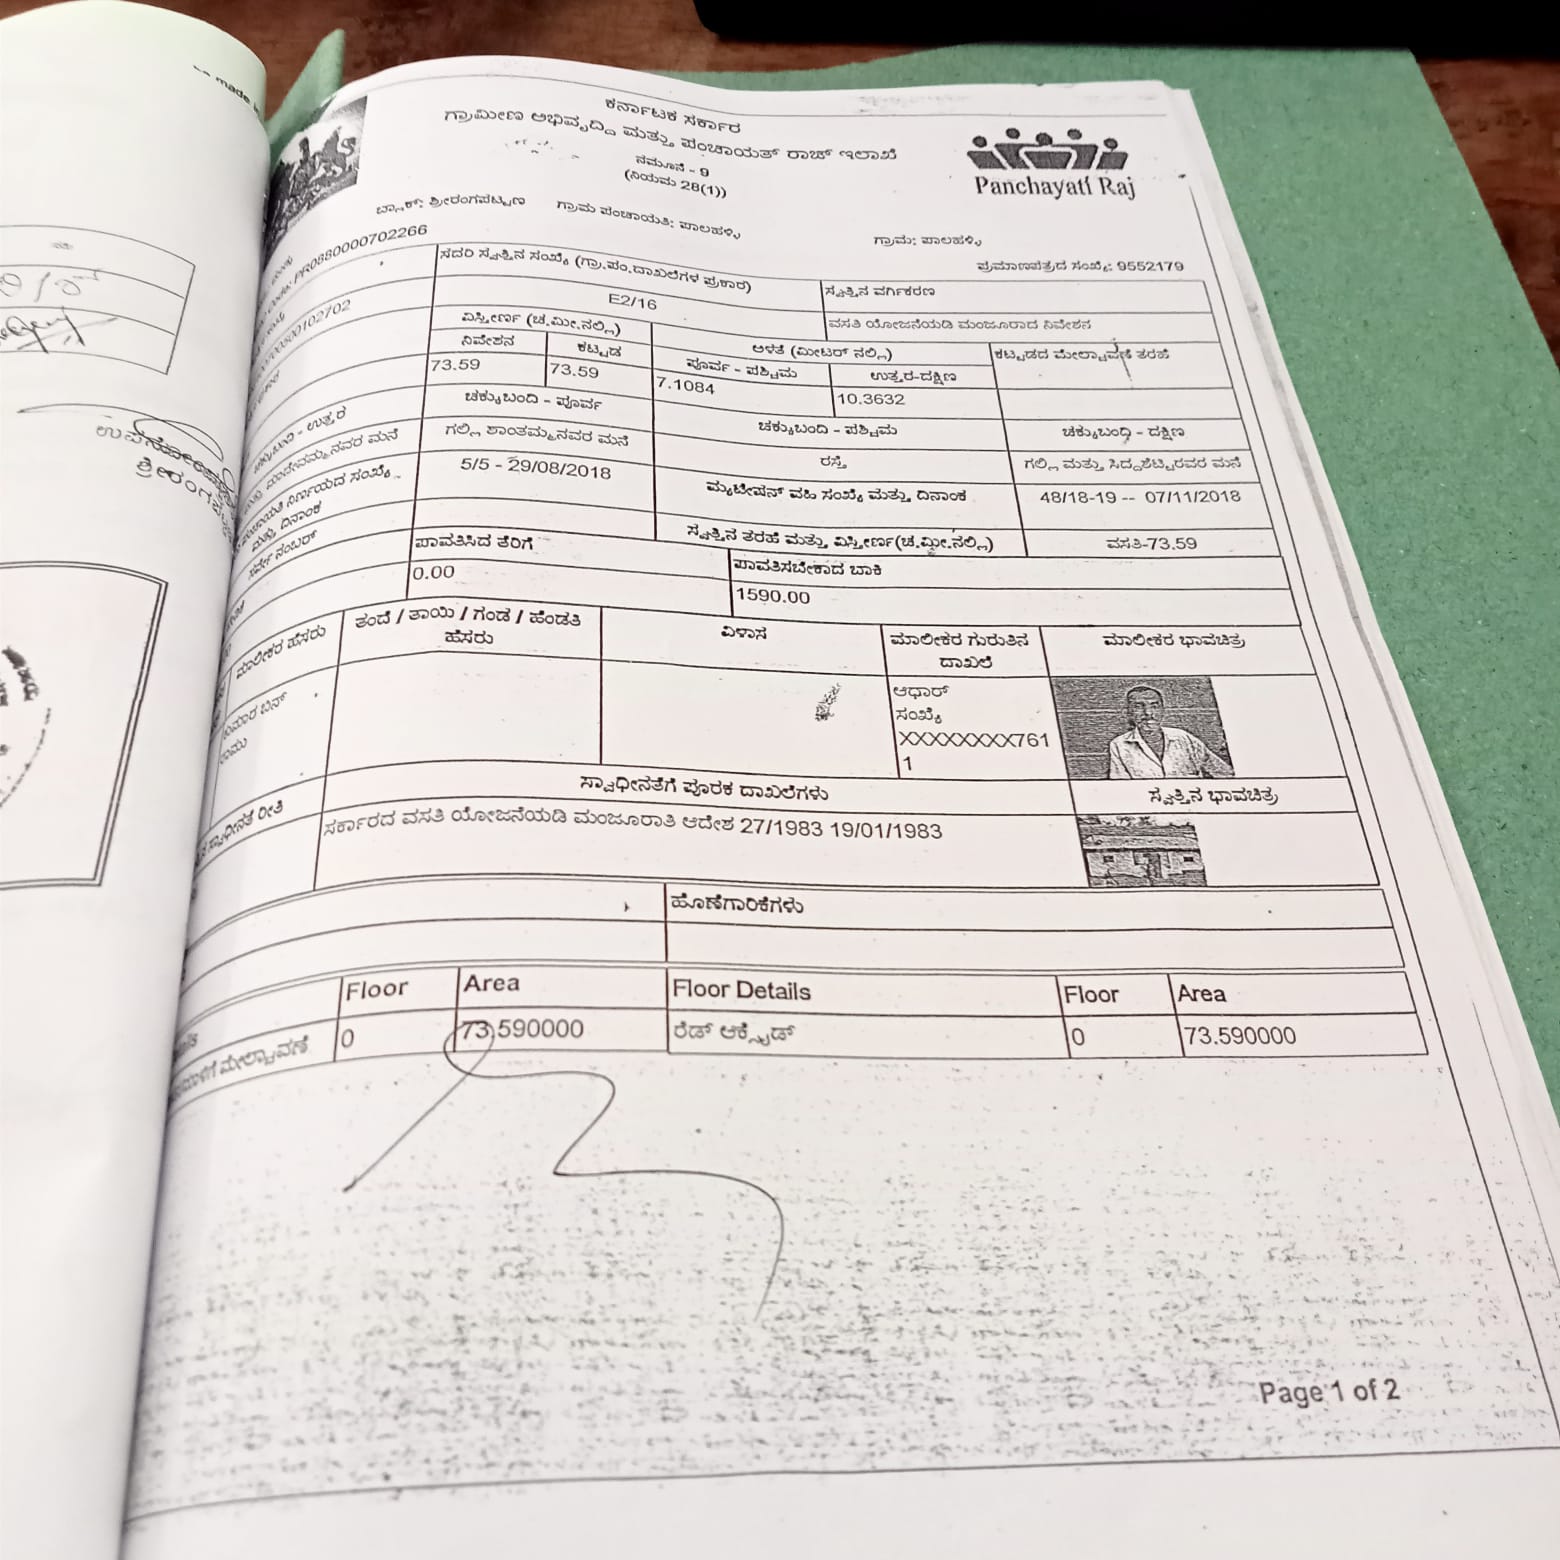 made
ಕರ್ನಾಟಕ ಸರ್ಕಾರ
ಗ್ರಾಮೀಣ ಅಭಿವೃದ್ಧಿ ಮತ್ತು ಪಂಚಾಯತ್ ರಾಜ್ ಇಲಾಖೆ
ನಮೂನೆ - 9
(ನಿಯಮ 28(1))
Panchayati Raj
ಬ್ಲಾಕ್: ಶ್ರೀರಂಗಪಟ್ಟಣ ಗ್ರಾಮ ಪಂಚಾಯತಿ: ಪಾಲಹಳ್ಳಿ ಗ್ರಾಮ: ಪಾಲಹಳ್ಳಿ
PR0880000702266 ಪ್ರಮಾಣಪತ್ರದ ಸಂಖ್ಯೆ: 9552179
ಸದರಿ ಸ್ವತ್ತಿನ ಸಂಖ್ಯೆ (ಗ್ರಾ.ಪಂ.ದಾಖಲೆಗಳ ಪ್ರಕಾರ) ಸ್ವತ್ತಿನ ವರ್ಗಿಕರಣ
E2/16 ವಸತಿ ಯೋಜನೆಯಡಿ ಮಂಜೂರಾದ ನಿವೇಶನ
ವಿಸ್ತೀರ್ಣ (ಚ.ಮೀ.ನಲ್ಲಿ) ಅಳತೆ (ಮೀಟರ್ ನಲ್ಲಿ) ಕಟ್ಟಡದ ಮೇಲ್ಚಾವಣಿ ತರಹೆ
ನಿವೇಶನ ಕಟ್ಟಡ ಪೂರ್ವ - ಪಶ್ಚಿಮ ಉತ್ತರ-ದಕ್ಷಿಣ
73.59 73.59 7.1084 10.3632
ಚಕ್ಕುಬಂದಿ - ಉತ್ತರ ಚಕ್ಕುಬಂದಿ - ಪೂರ್ವ ಚಕ್ಕುಬಂದಿ - ಪಶ್ಚಿಮ ಚಕ್ಕುಬಂದಿ - ದಕ್ಷಿಣ
ಮನೆ ಗಲ್ಲಿ ಶಾಂತಮ್ಮನವರ ಮನೆ ರಸ್ತೆ ಗಲ್ಲಿ ಮತ್ತು ಸಿದ್ದಶೆಟ್ಟರವರ ಮನೆ
ನಿರ್ಣಯದ ಸಂಖ್ಯೆ ಮತ್ತು ದಿನಾಂಕ 5/5 - 29/08/2018 ಮ್ಯುಟೇಷನ್ ವಹಿ ಸಂಖ್ಯೆ ಮತ್ತು ದಿನಾಂಕ 48/18-19 -- 07/11/2018
ಸರ್ವೇ ನಂಬರ್ ಸ್ವತ್ತಿನ ತರಹೆ ಮತ್ತು ವಿಸ್ತೀರ್ಣ(ಚ.ಮೀ.ನಲ್ಲಿ) ವಸತಿ-73.59
ಪಾವತಿಸಿದ ತೆರಿಗೆ ಪಾವತಿಸಬೇಕಾದ ಬಾಕಿ
0.00 1590.00
ಮಾಲೀಕರ ಹೆಸರು ತಂದೆ / ತಾಯಿ / ಗಂಡ / ಹೆಂಡತಿ ಹೆಸರು ವಿಳಾಸ ಮಾಲೀಕರ ಗುರುತಿನ ದಾಖಲೆ ಮಾಲೀಕರ ಭಾವಚಿತ್ರ
ಬಿನ್ ರಾಮು ಆಧಾರ್
ಸಂಖ್ಯೆ
XXXXXXXX761
1
ಸ್ವಾಧೀನತೆ ರೀತಿ ಸ್ವಾಧೀನತೆಗೆ ಪೂರಕ ದಾಖಲೆಗಳು ಸ್ವತ್ತಿನ ಭಾವಚಿತ್ರ
ಸರ್ಕಾರದ ವಸತಿ ಯೋಜನೆಯಡಿ ಮಂಜೂರಾತಿ ಆದೇಶ 27/1983 19/01/1983
ಹೊಣೆಗಾರಿಕೆಗಳು
Floor Area Floor Details Floor Area
ಮೇಲ್ಚಾವಣಿ 0 73.590000 ರೆಡ್ ಆಕ್ಸೈಡ್ 0 73.590000
Page 1 of 2